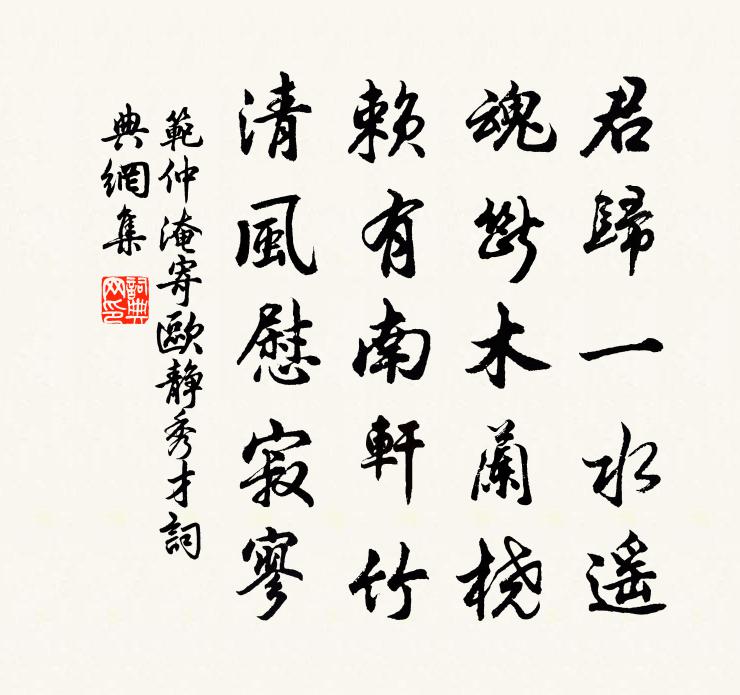 君歸一水遥
魂斷木蘭桡
賴有南軒竹
清風慰寂寥
範仲淹寄歐靜秀才詞
典網集
詞典
网印